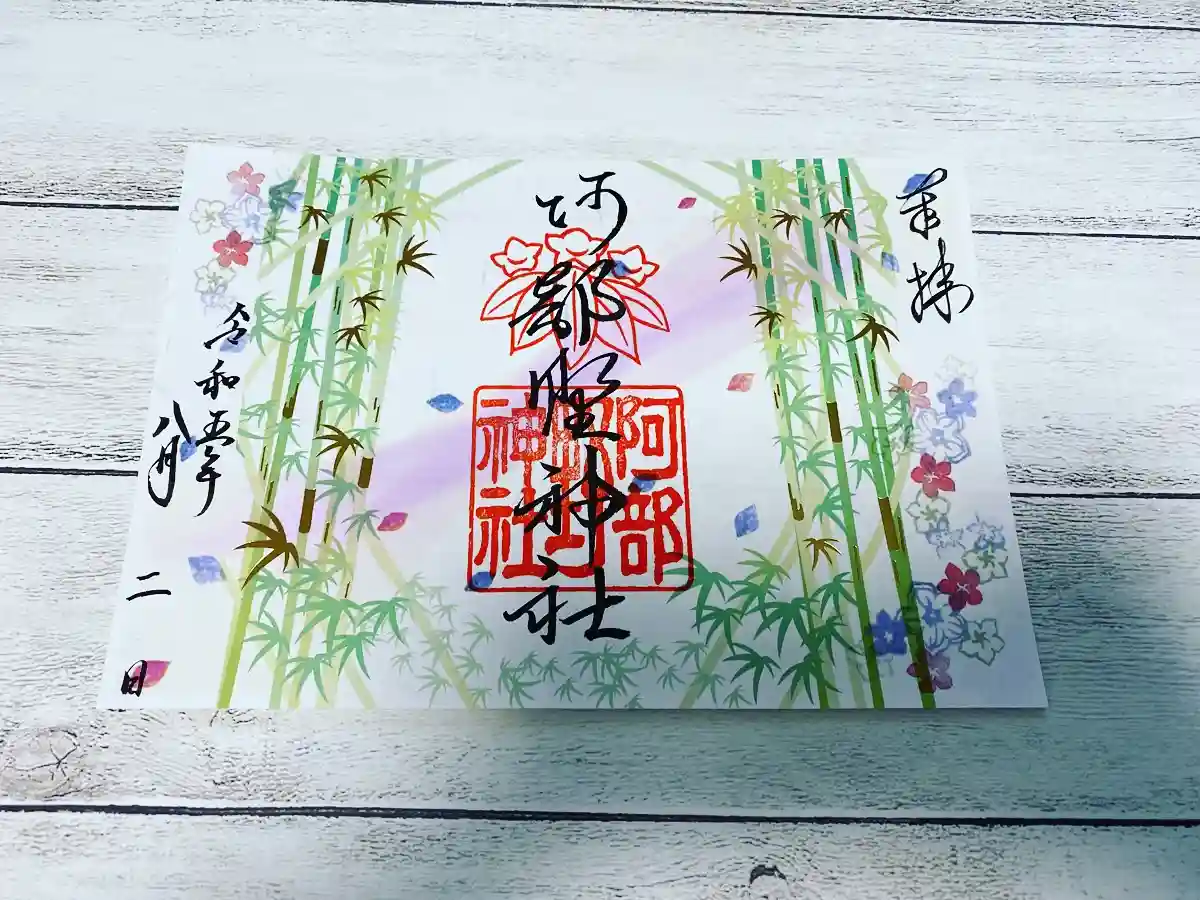 奉拝
阿部野神社
阿部
埜
神社
令和五年
八月二日